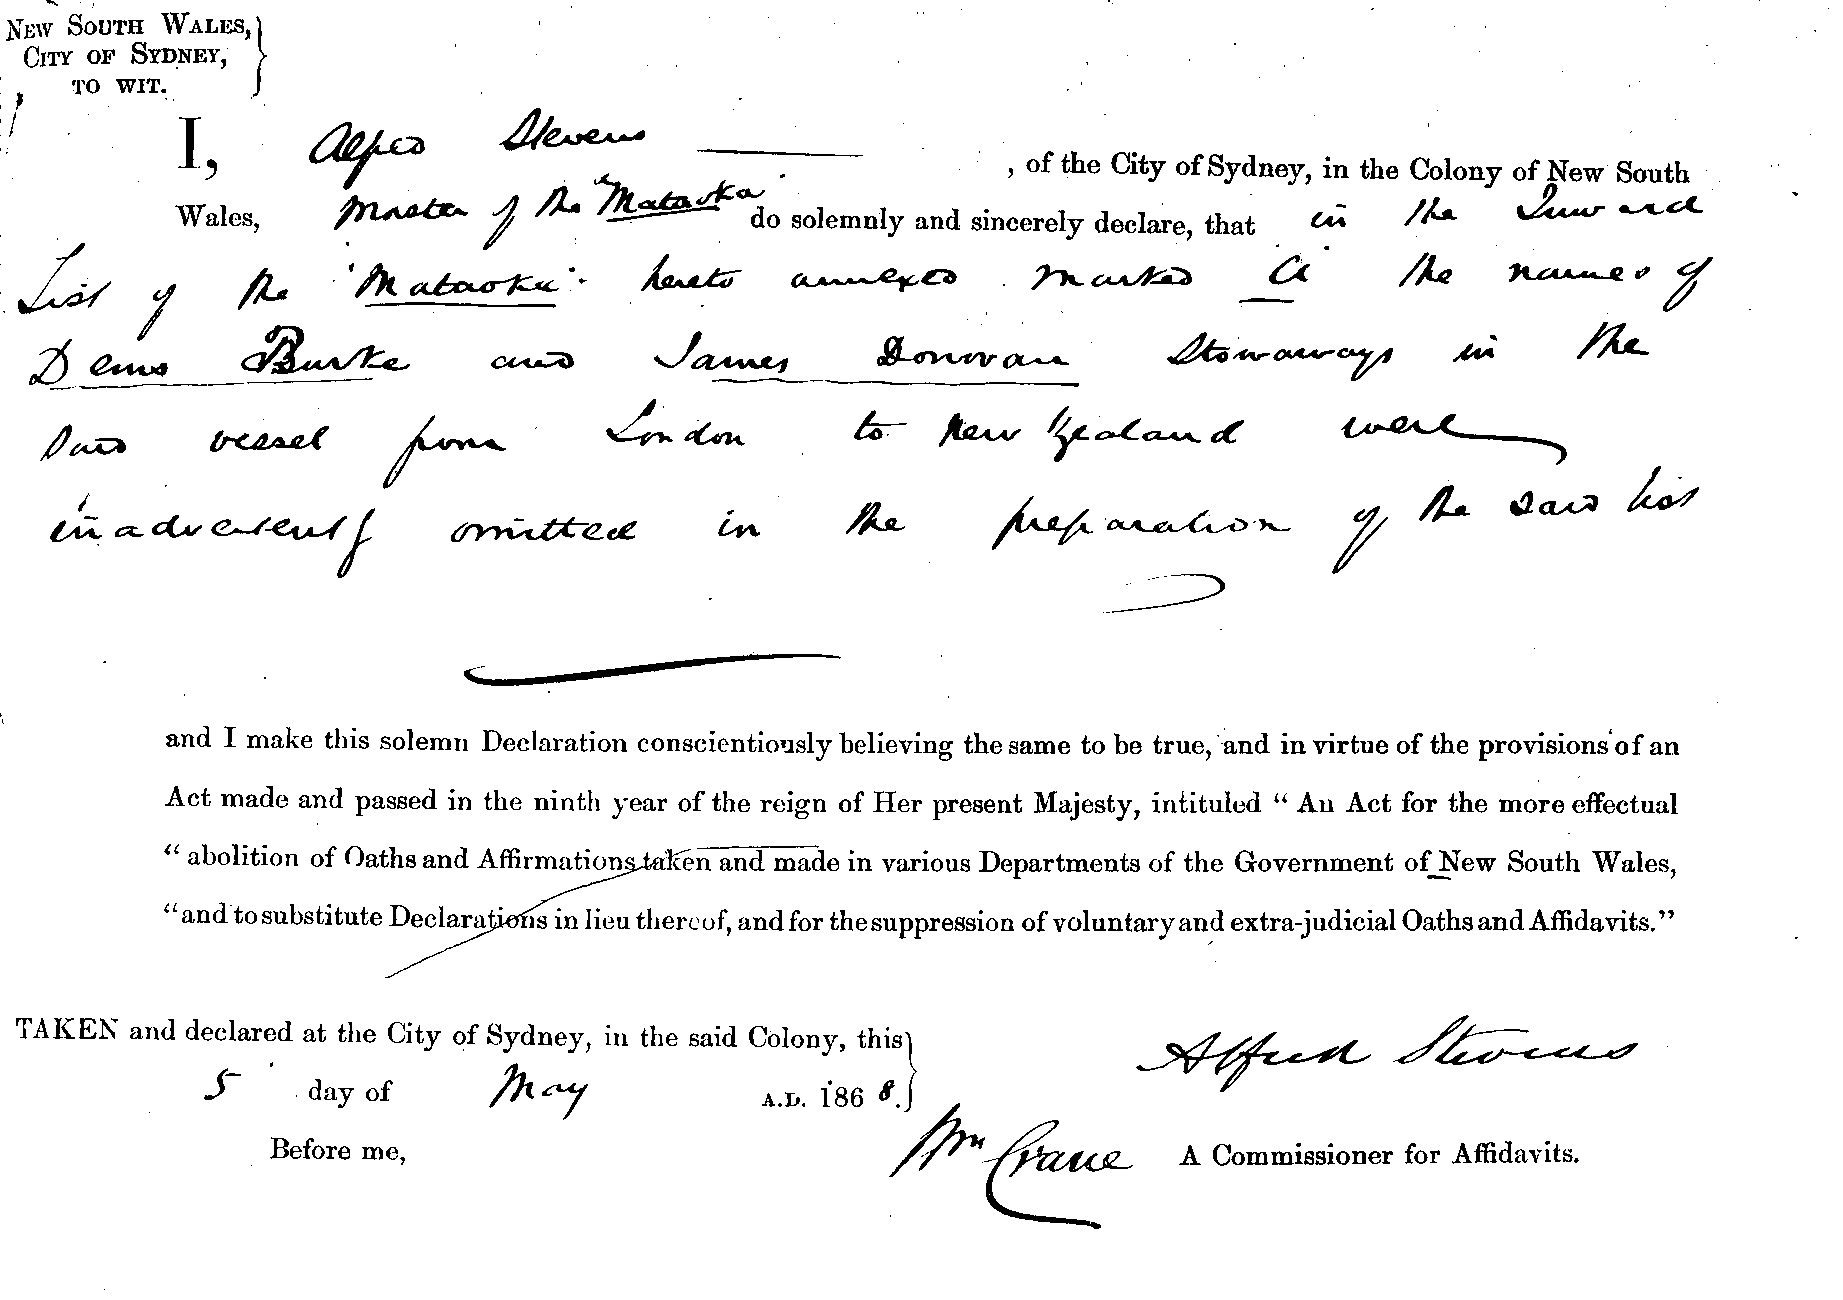 NEW SOUTH WALES,
CITY OF SYDNEY,
TO WIT.
I, Alfred Stevens , of the City of Sydney, in the Colony of New South
Wales, Master of the "Mataoka" do solemnly and sincerely declare, that in the Inward
List of the "Mataoka" hereto annexed marked A the names of
Denis Burke and James Donovan Stowaways in the
said vessel from London to New Zealand were
inadvertently omitted in the preparation of the said list
and I make this solemn Declaration conscientiously believing the same to be true, and in virtue of the provisions of an
Act made and passed in the ninth year of the reign of Her present Majesty, intituled "An Act for the more effectual
"abolition of Oaths and Affirmations taken and made in various Departments of the Government of New South Wales,
"and to substitute Declarations in lieu thereof, and for the suppression of voluntary and extra-judicial Oaths and Affidavits."
TAKEN and declared at the City of Sydney, in the said Colony, this
5 day of May A.D. 1868.
Alfred Stevens
Before me,
Wm Crane A Commissioner for Affidavits.